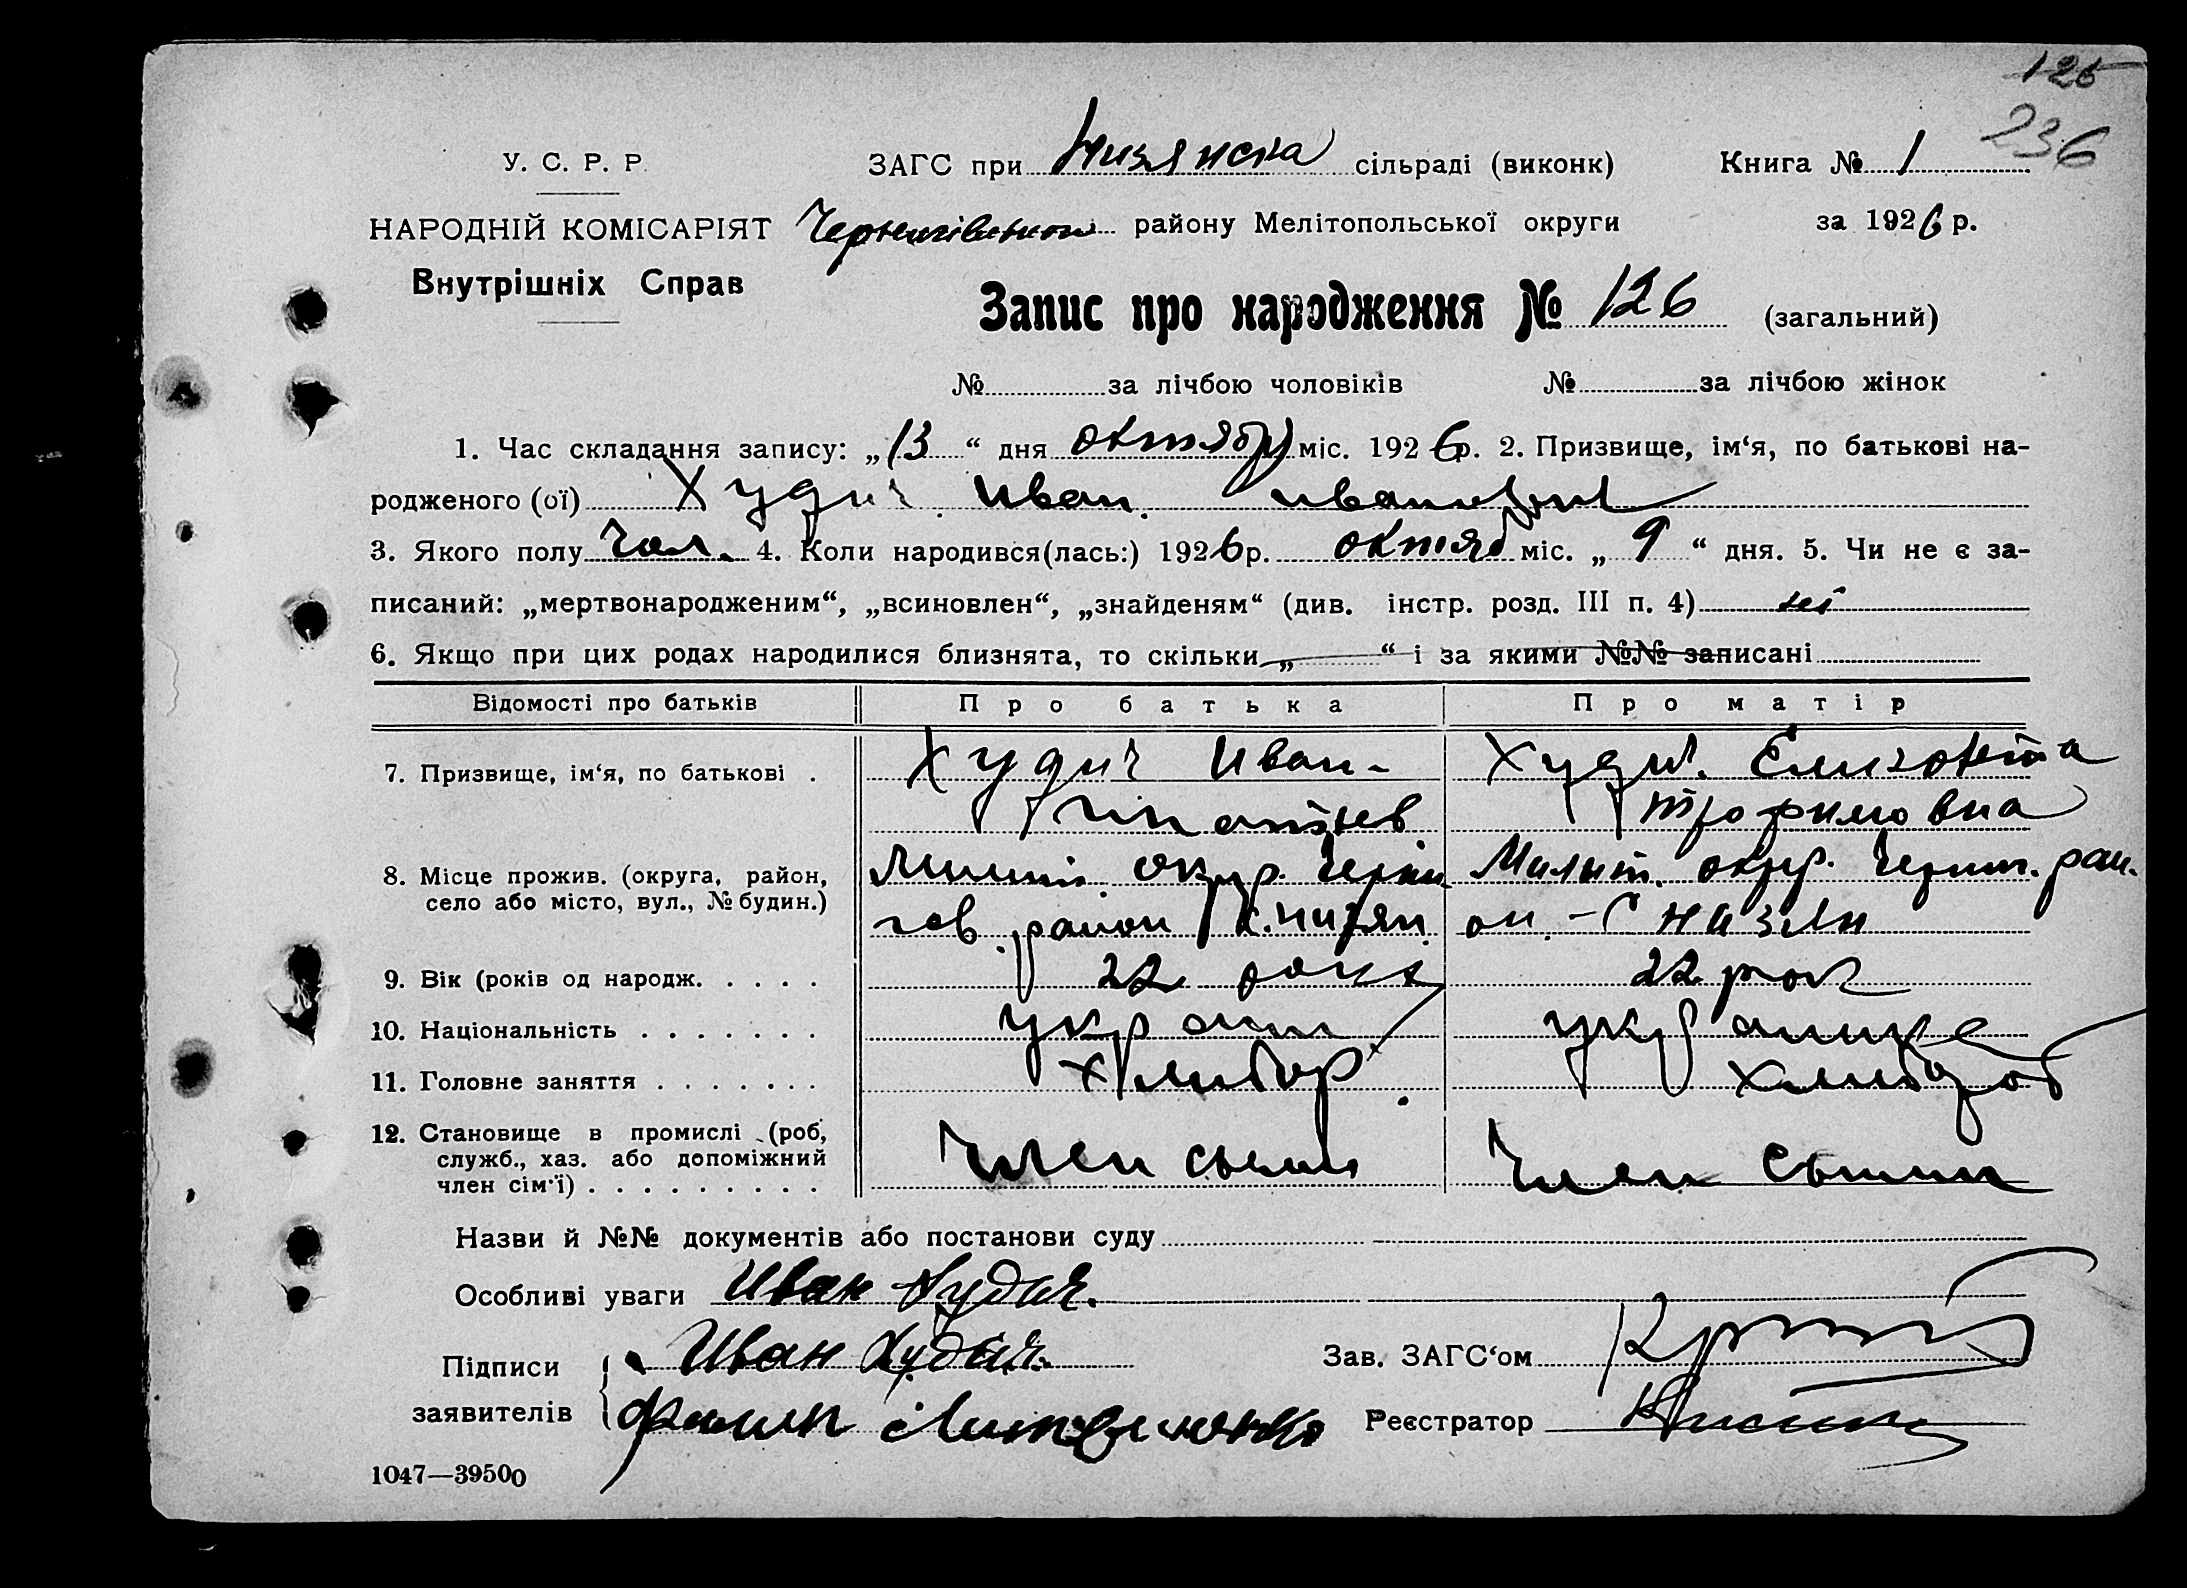 125
236
У. С. Р. Р. ЗАГС при Низянска сільраді (виконк) Книга № 1
НАРОДНІЙ КОМІСАРІЯТ району Мелітопольської округи за 1926 р.
Внутрішніх Справ
Запис про народження № 126 (загальний)
№ за лічбою чоловіків № за лічбою жінок
1. Час складання запису: „13“ дня октября міс. 1926 р. 2. Призвище, ім‘я, по батькові на-
родженого (ої) Худич Иван Иванович
3. Якого полу Чол. 4. Коли народився(лась:) 1926 р. октяб міс. „9“ дня. 5. Чи не є за-
писаний: „мертвонародженим“, „всиновлен“, „знайденям“ (див. інстр. розд. III п. 4)
6. Якщо при цих родах народилися близнята, то скільки „ “ і за якими №№ записані
Відомості про батьків Про батька Про матір
7. Призвище, ім‘я, по батькові . Худич Иван Худич Елизовета
Трофимовна
8. Місце прожив. (округа, район, окру. Мелит. окру. Черниг. рай.
село або місто, вул., № будин.) район
9. Вік (років од народж. . . . . 22 рока 22 рок
10. Національність . . . . . . . украин
11. Головне заняття . . . . . . . хлибор хлибороб
12. Становище в промислі (роб,
служб., хаз. або допоміжний Член сьемы Член сьемы
член сім‘ї) . . . . . . . . .
Назви й №№ документів або постанови суду
Особливі уваги Иван Худич.
Підписи Иван Худич. Зав. ЗАГС‘ом
заявителів Литвиненко Реєстратор
1047—39500